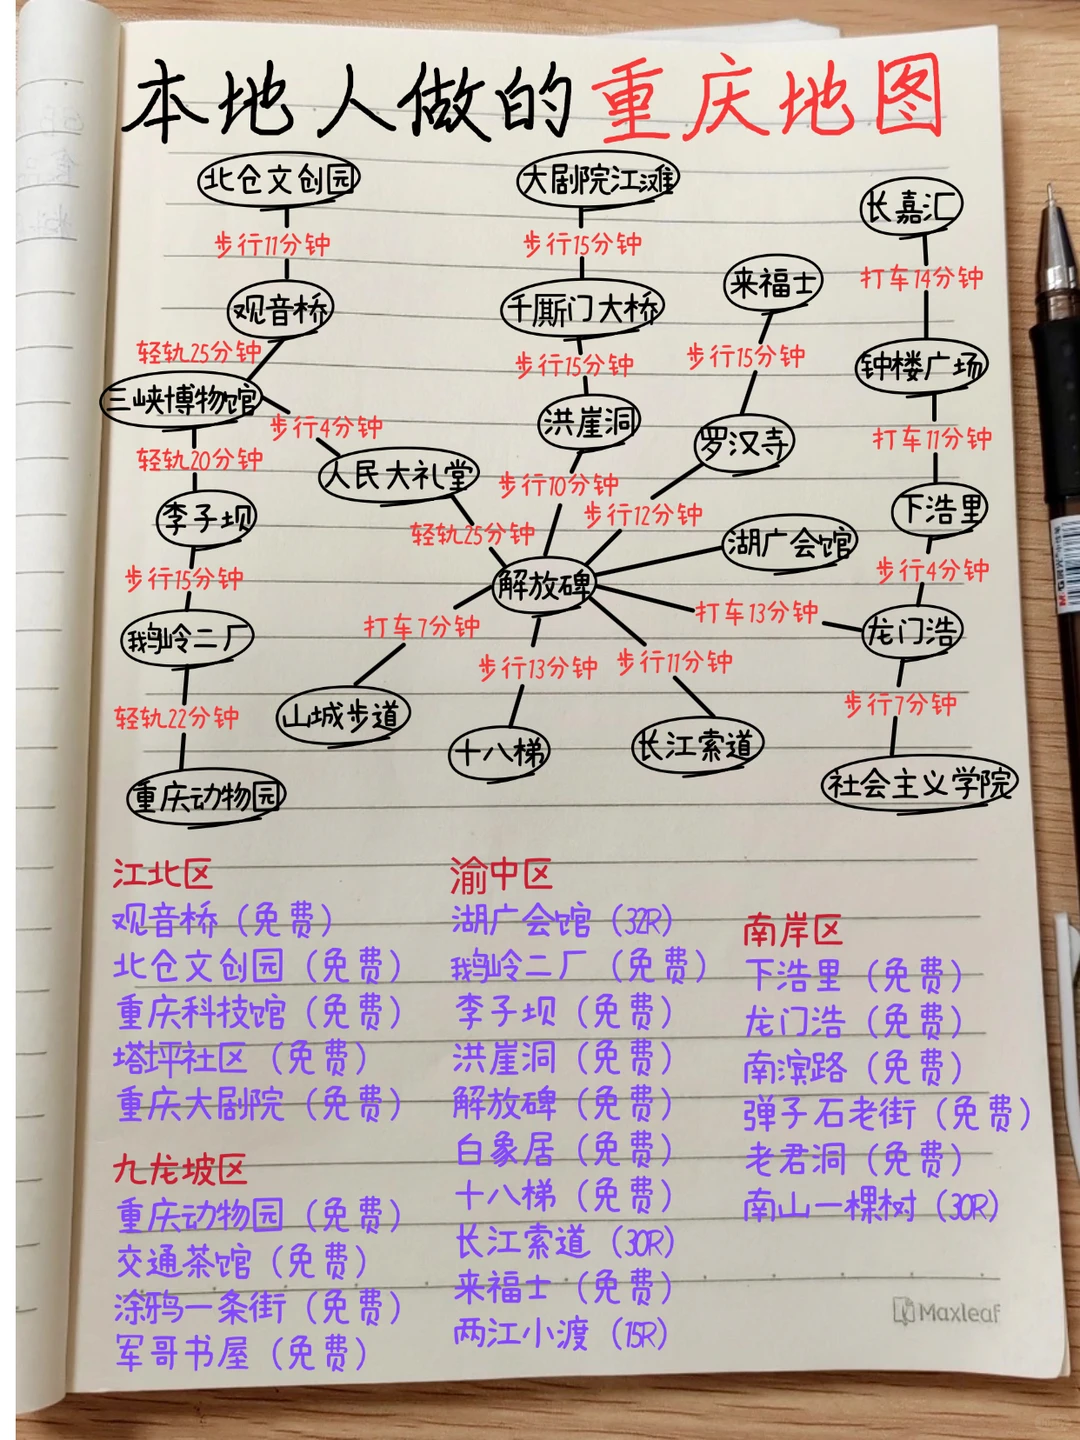 本地人做的重庆地图
北仓文创园
大剧院江滩
长嘉汇
步行11分钟
步行15分钟
打车14分钟
观音桥
千厮门大桥
来福士
轻轨25分钟
步行15分钟
步行15分钟
钟楼广场
三峡博物馆
步行4分钟
洪崖洞
罗汉寺
打车11分钟
轻轨20分钟
人民大礼堂
步行10分钟
步行12分钟
下浩里
李子坝
轻轨25分钟
湖广会馆
步行4分钟
步行15分钟
解放碑
打车13分钟
龙门浩
鹅岭二厂
打车7分钟
步行13分钟
步行11分钟
步行7分钟
轻轨22分钟
山城步道
十八梯
长江索道
社会主义学院
重庆动物园
江北区
观音桥（免费）
北仓文创园（免费）
重庆科技馆（免费）
塔坪社区（免费）
重庆大剧院（免费）
九龙坡区
重庆动物园（免费）
交通茶馆（免费）
涂鸦一条街（免费）
军哥书屋（免费）
渝中区
湖广会馆（32R）
鹅岭二厂（免费）
李子坝（免费）
洪崖洞（免费）
解放碑（免费）
白象居（免费）
十八梯（免费）
长江索道（30R）
来福士（免费）
两江小渡（15R）
南岸区
下浩里（免费）
龙门浩（免费）
南滨路（免费）
弹子石老街（免费）
老君洞（免费）
南山一棵树（30R）
Maxleaf